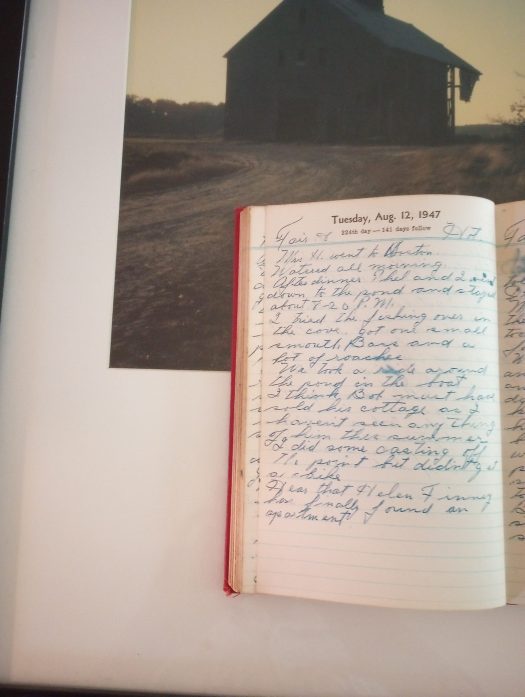 Tuesday, Aug. 12, 1947
224th day — 141 days follow
Fair &
Mrs H. went to Boston.
Watered all morning.
After dinner Ethel and I
down to the pond and stayed
about 7-20 P.M.
I tried the fishing over in
the cove. got one small
smouth Bass and a
lot of roaches
We took a ride around
the pond in the boat
I think Bob must had
sold his cottage as I
haven't seen any thing
of him this summer
I did some casting off
the point but didn't get
a strike
Hear that Helen Finney
has finally found an
apartment